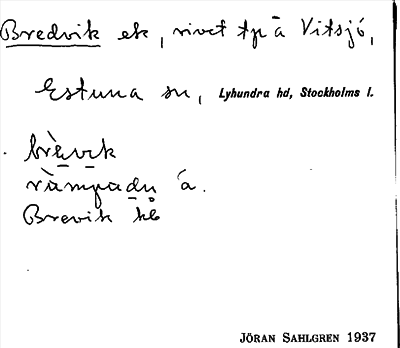 Bredvik ek, rivet tp å Vitsjö,
Estuna sn, Lyhundra hd, Stockholms l.
brèvik
ràmpadn å.
Brevik kb
JÖRAN SAHLGREN 1937